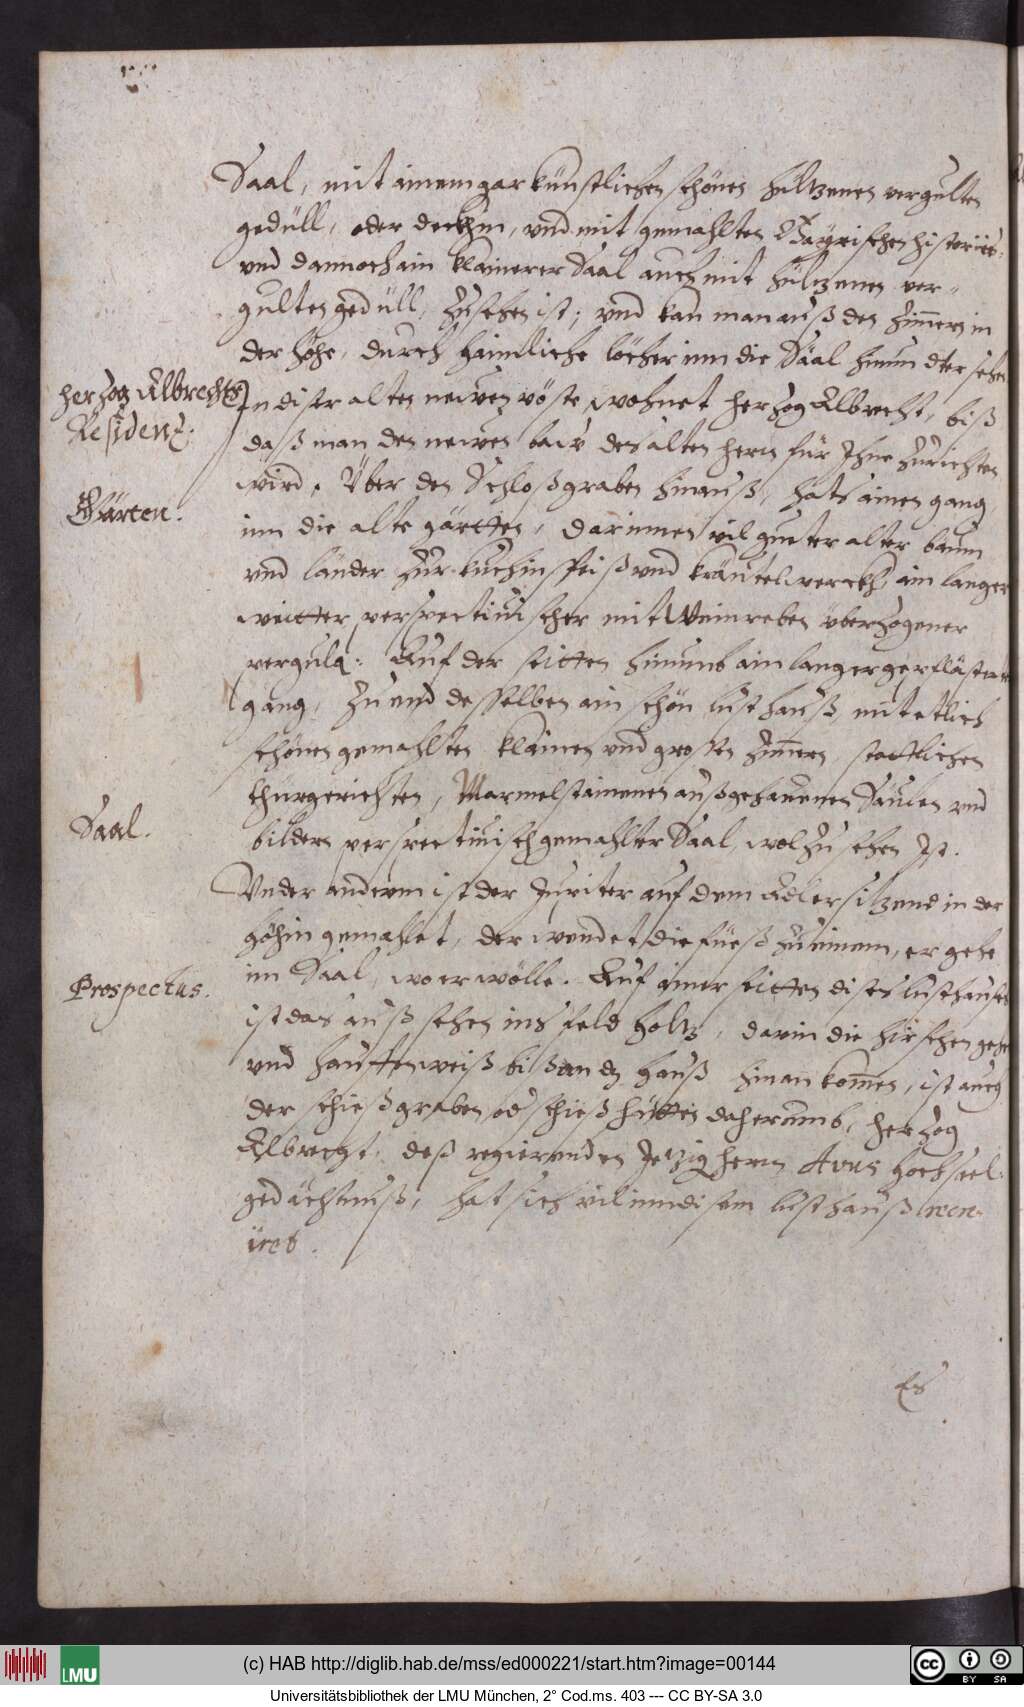 Saal, mit ainem gar künstlichen schönen hültzenen vergulten
gedüll, oder deckhin, vnd mit gemahlten Bayrischen historiis,
vnd dannoch ain klainerer Saal auch mit hültzenen ver-
gulten gedüll, zusehen ist; vnd kan man auß den Zimern in
der höhe, durch haimliche löcher inn die Säal hinunder sehen
herzog Albrechts
Residenz.
In diser alten newen vöste, wohnet herzog Albrecht, biß
daß man den newen baw des alten herrn für Ihne zurichten
wird. Über den Schloßgraben hinauß, hats ainen gang
Gärten.
inn die alte gärtten, darinnen vil gueter alter baum
vnd länder zur kuchinspeiß vnd kräutelwerckh, ain langer
weitter, perspectiuischer mit Weinreben überzogener
pergula: Auf der seitten hinumb ain langer gepflästerter
gang, zu end desselben ain schön lusthauß, mit etlich
schönen gemahlten klainen vnd grossen zimern, stattlichen
thürgerichten, Marmelstainenen außgehauenen Säulen vnd
Saal.
bildern perspectiuisch gemahlter Saal, wol zu sehen Ist.
Vnder anderm ist der Jupiter auf dem Adler sitzend in der
höhin gemahlet, der wendet die füeß zu einem, er gehe
Prospectus.
im Saal, wo er wölle. Auf ainer seitten dises lusthauses
ist das außsehen ins feld holtz, darin die hirschen gehen
vnd hauffenweiß biß an dz hauß hinan komen, ist auch
der schießgraben, od schießhütten daherumb, herzog
Albrecht, deß regierenden Jetzig herrn Avus hochseel.
gedächtnuß, hat sich vil inn disem lusthauß recre-
iret.
Es
(c) HAB http://diglib.hab.de/mss/ed000221/start.htm?image=00144
LMU
cc BY SA
Universitätsbibliothek der LMU München, 2° Cod.ms. 403 --- CC BY-SA 3.0